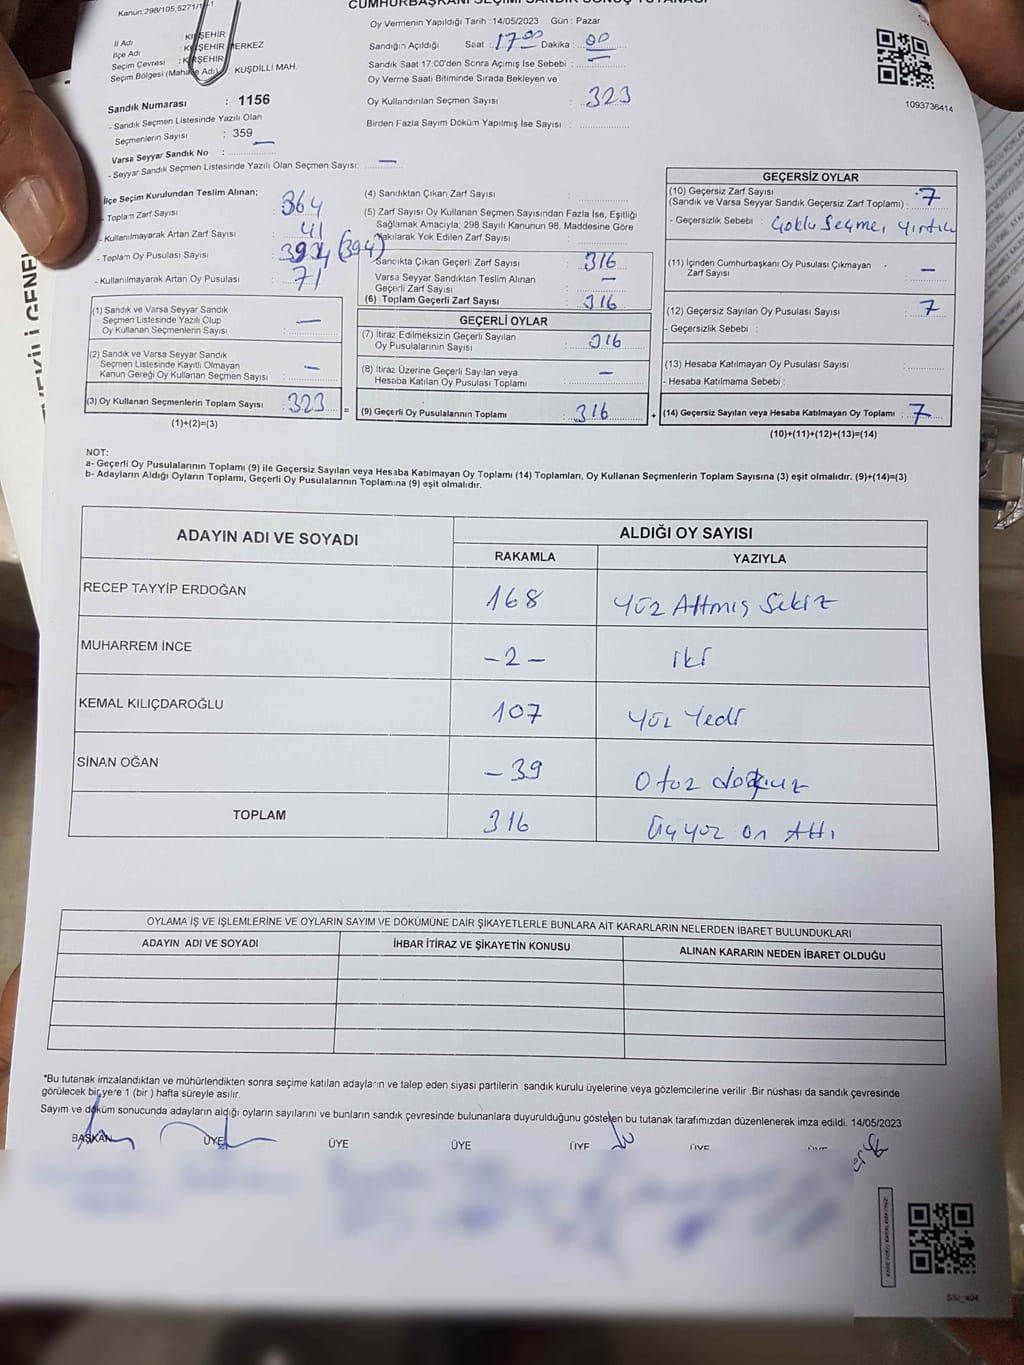 CUMHURBAŞKANI SEÇİMİ SANDIK SONUÇ TUTANAĞI
Oy Vermenin Yapıldığı Tarih : 14/05/2023 Gün : Pazar
Sandığın Açıldığı Saat : 17:00 Dakika : 00
Sandık Saat 17:00'den Sonra Açımış İse Sebebi : —
Oy Verme Saati Bitiminde Sırada Bekleyen ve
Oy Kullandırılan Seçmen Sayısı : 323
Birden Fazla Sayım Döküm Yapılmış İse Sayısı :
1093736414
İl Adı : KIRŞEHİR
İlçe Adı : KIRŞEHİR MERKEZ
Seçim Çevresi : KIRŞEHİR
Seçim Bölgesi (Mahalle Adı) : KUŞDİLLİ MAH.
Sandık Numarası : 1156
- Sandık Seçmen Listesinde Yazılı Olan
Seçmenlerin Sayısı : 359
Varsa Seyyar Sandık No : —
- Seyyar Sandık Seçmen Listesinde Yazılı Olan Seçmen Sayısı: —
İlçe Seçim Kurulundan Teslim Alınan;
- Toplam Zarf Sayısı : 364
- Kullanılmayarak Artan Zarf Sayısı : 41
- Toplam Oy Pusulası Sayısı : (394)
- Kullanılmayarak Artan Oy Pusulası : 71
(1) Sandık ve Varsa Seyyar Sandık
Seçmen Listesinde Yazılı Olup
Oy Kullanan Seçmenlerin Sayısı : —
(2) Sandık ve Varsa Seyyar Sandık
Seçmen Listesinde Kayıtlı Olmayan
Kanun Gereği Oy Kullanan Seçmen Sayısı : —
(3) Oy Kullanan Seçmenlerin Toplam Sayısı : 323
(1)+(2)=(3)
(4) Sandıktan Çıkan Zarf Sayısı :
(5) Zarf Sayısı Oy Kullanan Seçmen Sayısından Fazla İse, Eşitliği
Sağlamak Amacıyla; 298 Sayılı Kanunun 98. Maddesine Göre
Yakılarak Yok Edilen Zarf Sayısı :
Sandıkta Çıkan Geçerli Zarf Sayısı : 316
Varsa Seyyar Sandıktan Teslim Alınan
Geçerli Zarf Sayısı : —
(6) Toplam Geçerli Zarf Sayısı : 316
GEÇERLİ OYLAR
(7) İtiraz Edilmeksizin Geçerli Sayılan
Oy Pusulalarının Sayısı : 316
(8) İtiraz Üzerine Geçerli Sayılan veya
Hesaba Katılan Oy Pusulası Toplamı : —
= (9) Geçerli Oy Pusulalarının Toplamı : 316
GEÇERSİZ OYLAR
(10) Geçersiz Zarf Sayısı
(Sandık ve Varsa Seyyar Sandık Geçersiz Zarf Toplamı) : 7
- Geçersizlik Sebebi : Çoklu Seçme, yırtık
(11) İçinden Cumhurbaşkanı Oy Pusulası Çıkmayan
Zarf Sayısı : —
(12) Geçersiz Sayılan Oy Pusulası Sayısı : 7
- Geçersizlik Sebebi :
(13) Hesaba Katılmayan Oy Pusulası Sayısı :
- Hesaba Katılmama Sebebi :
+ (14) Geçersiz Sayılan veya Hesaba Katılmayan Oy Toplamı : 7
(10)+(11)+(12)+(13)=(14)
NOT:
a- Geçerli Oy Pusulalarının Toplamı (9) ile Geçersiz Sayılan veya Hesaba Katılmayan Oy Toplamı (14) Toplamları, Oy Kullanan Seçmenlerin Toplam Sayısına (3) eşit olmalıdır. (9)+(14)=(3)
b- Adayların Aldığı Oyların Toplamı, Geçerli Oy Pusulalarının Toplamına (9) eşit olmalıdır.
ADAYIN ADI VE SOYADI ALDIĞI OY SAYISI
RAKAMLA YAZIYLA
RECEP TAYYİP ERDOĞAN 168 Yüz Altmış Sekiz
MUHARREM İNCE -2- iki
KEMAL KILIÇDAROĞLU 107 Yüz Yedi
SİNAN OĞAN -39 Otuz dokuz
TOPLAM 316 Üçyüz on Altı
OYLAMA İŞ VE İŞLEMLERİNE VE OYLARIN SAYIM VE DÖKÜMÜNE DAİR ŞİKAYETLERLE BUNLARA AİT KARARLARIN NELERDEN İBARET BULUNDUKLARI
ADAYIN ADI VE SOYADI İHBAR İTİRAZ VE ŞİKAYETİN KONUSU ALINAN KARARIN NEDEN İBARET OLDUĞU
*Bu tutanak imzalandıktan ve mühürlendikten sonra seçime katılan adayların ve talep eden siyasi partilerin sandık kurulu üyelerine veya gözlemcilerine verilir. Bir nüshası da sandık çevresinde
görülecek bir yere 1 (bir) hafta süreyle asılır.
Sayım ve döküm sonucunda adayların aldığı oyların sayılarını ve bunların sandık çevresinde bulunanlara duyurulduğunu gösteren bu tutanak tarafımızdan düzenlenerek imza edildi. 14/05/2023
BAŞKAN ÜYE ÜYE ÜYE ÜYE ÜYE